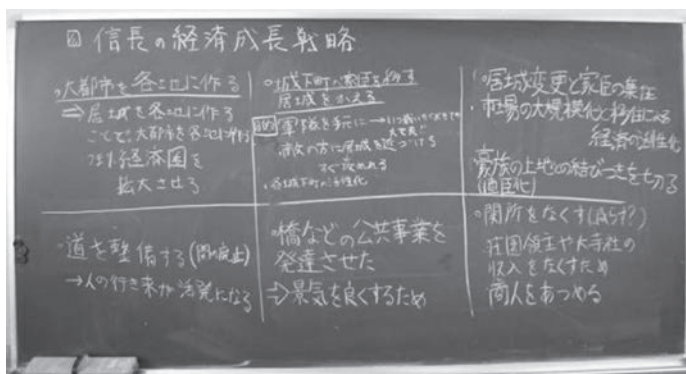 信長の経済成長戦略
・大都市を各地に作る
⇒居城を各地に作る
ことで、大都市を各地に作り
経済圏を
拡大させる
・城下町へ家臣を移す
居城をかえる
目的 軍隊を手元に→いつ戦いが
大丈夫
の方に居城を近づける
すぐ攻めれる
・各城下町の活性化
・居城変更と家臣の集住
・市場の大規模化と移住による
経済の活性化
豪族の土地との結びつきを切る
(直臣化)
・道を整備する(関の廃止)
→人の行き来が活発になる
・橋などの公共事業を
発達させた
⇒景気を良くするため
・関所をなくす(減らす?)
荘園領主や大寺社の
収入をなくすため
商人をあつめる